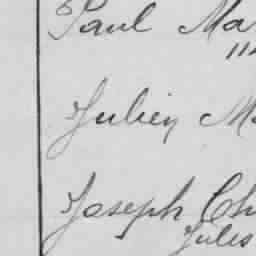 Paul Ma
Julien M
Joseph Ch
Jules